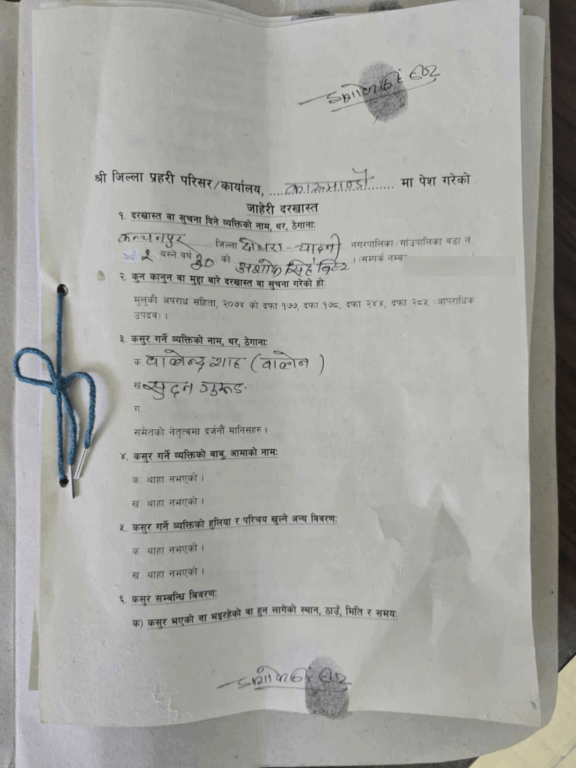 श्री जिल्ला प्रहरी परिसर/कार्यालय, काठमाण्डौ मा पेश गरेको
जाहेरी दरखास्त
१. दरखास्त वा सुचना दिने व्यक्तिको नाम, थर, ठेगानाः
कन्चनपुर जिल्ला दोधारा-चादनी नगरपालिका/गाउंपालिका वडा नं
२ बस्ने वर्ष ३० को अशोक सिंह विष्ट । (सम्पर्क नम्बर
२. कुन कानुन वा मुद्दा बारे दरखास्त वा सुचना गरेको होः
मुलुकी अपराध संहिता, २०७४ को दफा १७७, दफा १७८, दफा २४४, दफा २८५ (आपराधिक
उपद्रव) ।
३. कसुर गर्ने व्यक्तिको नाम, थर, ठेगानाः
क. वालेन्द्र शाह (वालेन)
ख. सुदन गुरुङ
ग.
समेतको नेतृत्वमा दर्जनौं मानिसहरु ।
४. कसुर गर्ने व्यक्तिको बाबु, आमाको नामः
क. थाहा नभएको ।
ख. थाहा नभएको ।
५. कसुर गर्ने व्यक्तिको हुलिया र परिचय खुल्ने अन्य विवरणः
क. थाहा नभएको ।
ख. थाहा नभएको ।
६. कसुर सम्बन्धि विवरणः
क) कसुर भएको वा भइरहेको वा हुन लागेको स्थान, ठाउँ, मिति र समयः